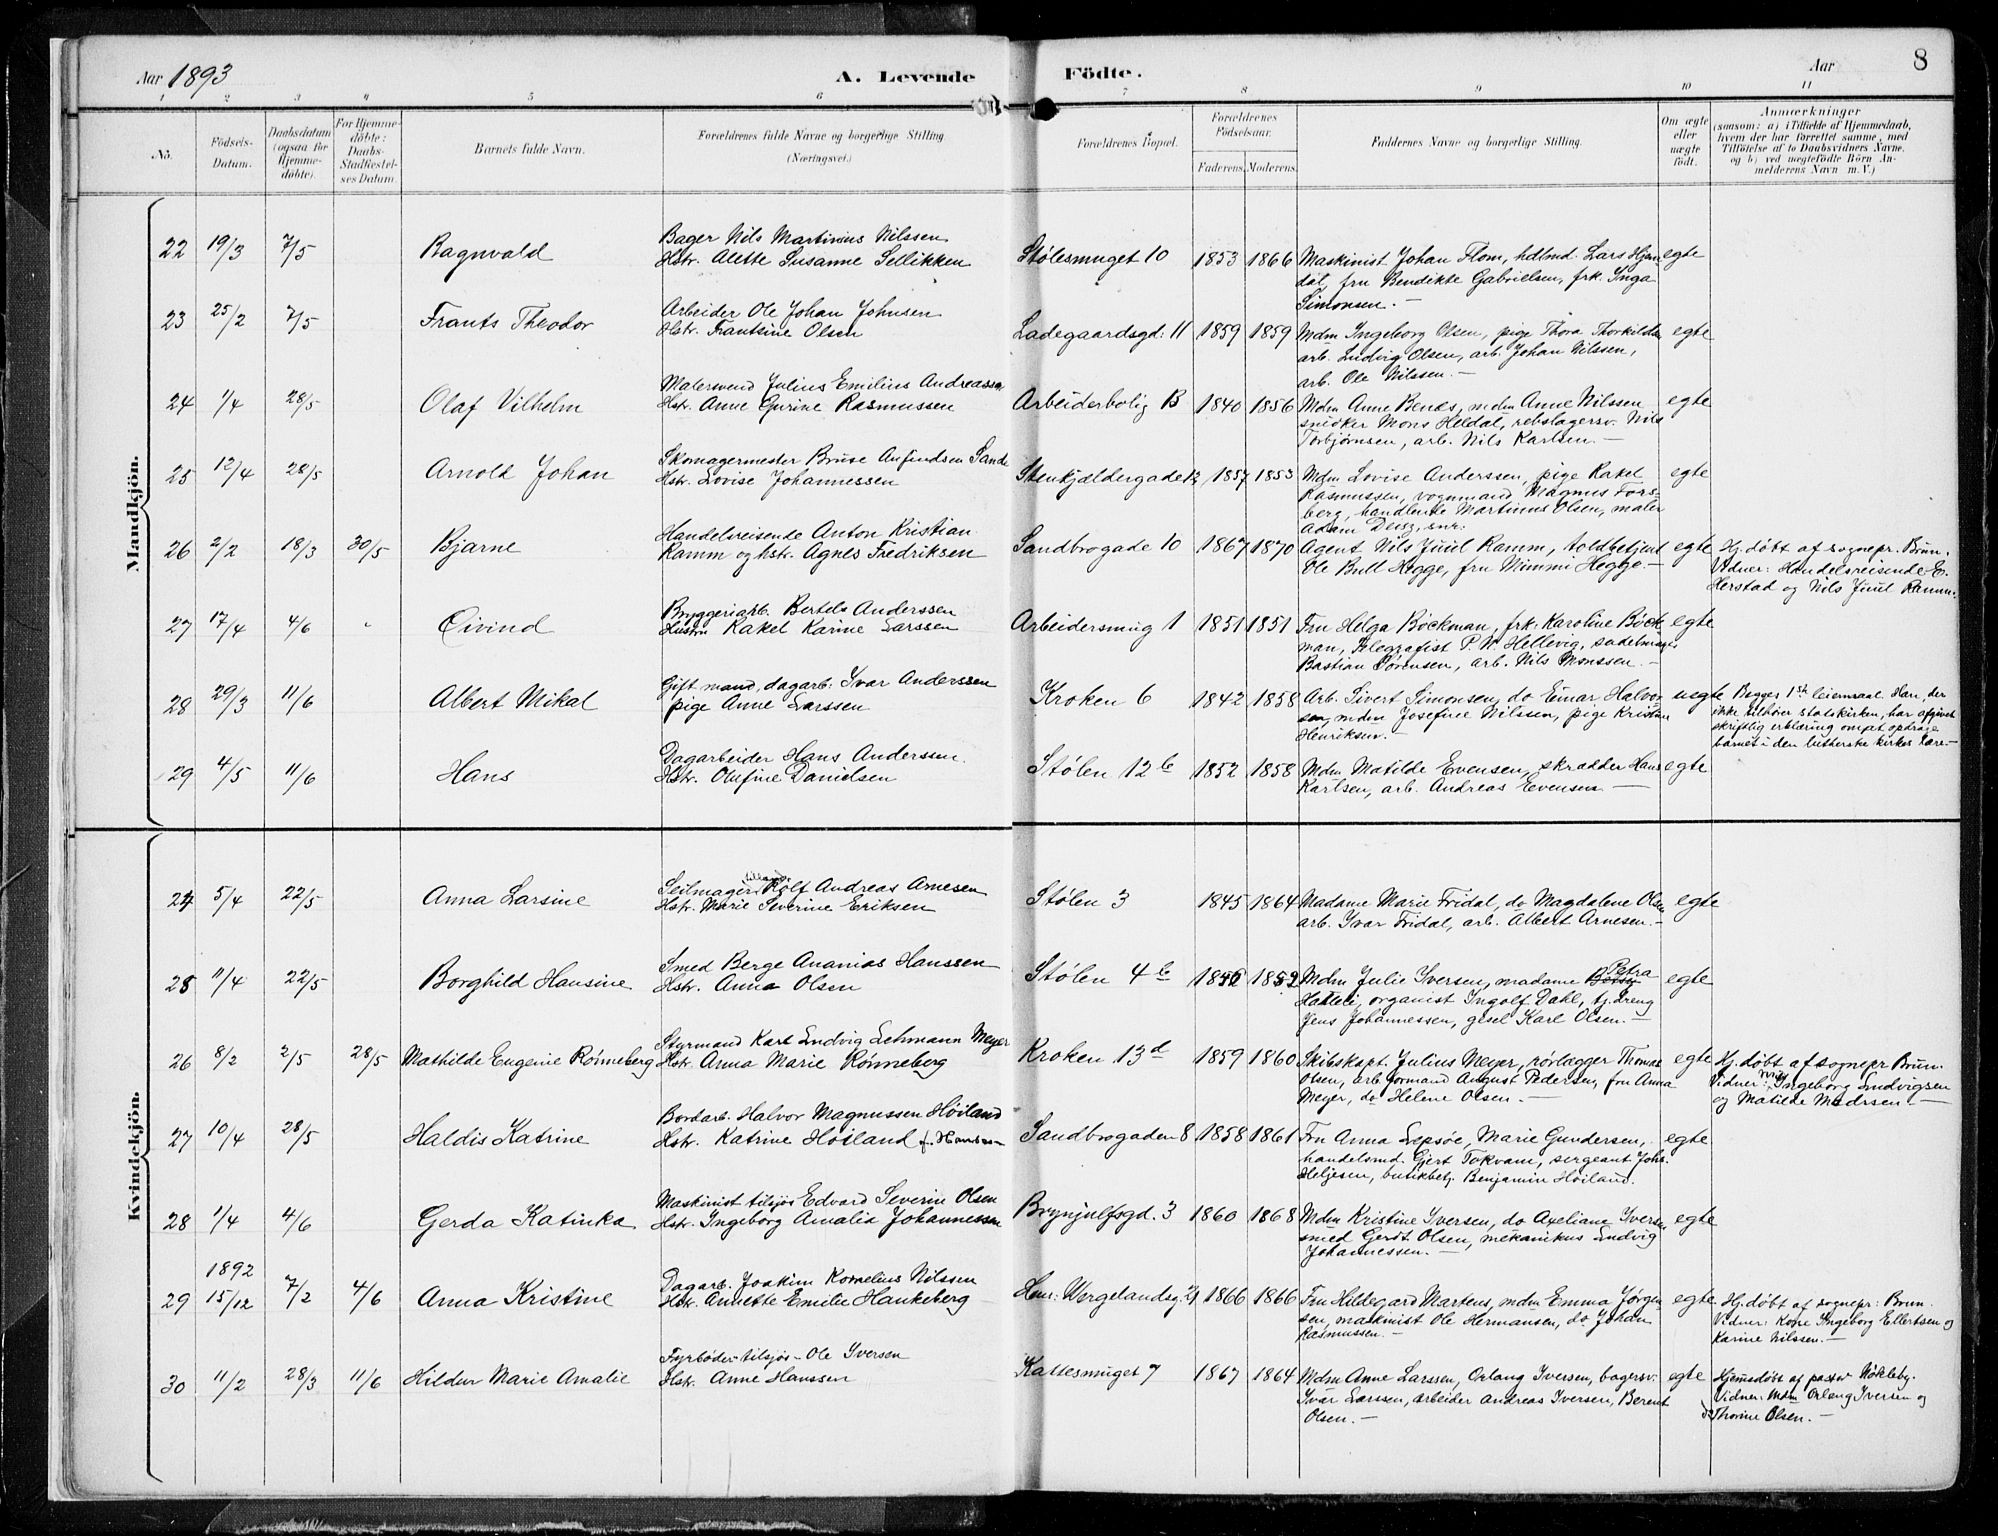 Aar 1893
A. Levende Födte.
Aar
8
1 2 3 4 5 6 7 8 9 10 11
No.
Födsels-Datum.
Daabsdatum (ogsaa for Hjemmedöbte).
For Hjemmedöbte: Daabs-Stadfæstelses Datum.
Barnets fulde Navn.
Forældrenes fulde Navne og borgerlige Stilling (Næringsvei.)
Forældrenes Bopæl.
Forældrenes Födselsaar.
Faderens. Moderens.
Faddernes Navne og borgerlige Stilling.
Om ægte eller uægte födt.
Anmærkninger
(saasom: a) i Tilfælde af Hjemmedaab, hvem der har forrettet samme, med Tilföielse af to Daabsvidners Navne, og b) ved uægtefödte Börn Anmelderens Navn m. V.)
Mandkjön.
22 19/3 7/5 Ragnvald
Bager Nils Martinius Nilssen
Hstr. Alette Susanne Sellikken
Stølesmuget 10 1853 1866
Maskinist Johan Flom, hdlmd. Lars Hjen-
dal, fru Bendikte Gabrielsen, frk. Inga
Simonsen.—
egte
23 25/2 7/5 Frants Theodor
Arbeider Ole Johan Johnsen
Hstr. Frantsine Olsen
Ladegaardsgd. 11 1859 1859
Mdm Ingeborg Olsen, pige Thora Thorkildsen
arb. Ludvig Olsen, arb. Johan Nilssen,
arb. Ole Nilssen.—
egte
24 1/4 28/5 Olaf Vilhelm
Malersvend Julius Emilius Andreassen
Hstr. Anne Gurine Rasmussen
Arbeiderbolig B 1840 1856
Mdm Anne Benes, mdm Anne Nilssen
snedker Mons Heldal, rebslagersv. Nils
Torbjørnsen, arb. Nils Karlsen.—
egte
25 12/4 28/5 Arnold Johan
Skomagermester Bruse Anfindsen Sande
Hstr. Lovise Johannessen
Stenkjeldergade 12 1857 1853
Mdm Lovise Anderssen, pige Rakel
Rasmussen, vognmand Magnus Fors-
berg, handlende Martinus Olsen, maler
Adam Deisz, snr.
egte
26 2/2 18/3 30/5 Bjarne
Handelsreisende Anton Kristian
Ramm og hstr. Agnes Fredriksen
Sandbrogade 10 1867 1870
Agent Nils Juul Ramm, toldbetjent
Ole Bull Hegge, fru Mimmi Hegge.—
egte
Hj. døbt af sognepr. Brun.
Vidner: Handelsreisende E.
Herstad og Nils Juul Ramm.
27 17/4 4/6 Øivind
Bryggeriarb. Bertels Anderssen
Hustru Rakel Karine Larssen
Arbeidersmug 1 1851 1851
Fru Helga Bøckman, frk. Karoline Bøck-
man, telegrafist P. W. Hellevig, sadelmager
Bastian Sørensen, arb. Nils Monssen.—
egte
28 29/3 11/6 Albert Mikal
Gift mand, dagarb. Ivar Anderssen
pige Anne Larssen
Kroken 6 1842 1858
Arb. Sivert Simonsen, do Einar Halvor-
sen, mdm Josefine Nilssen, pige Kristine
Henriksen.—
uegte
Begges 1ste leiermaal. Han, der
ikke tilhører statskirken, har afgivet
skriftlig erklæring om at opdrage
barnet i den lutherske kirkes lære—
29 4/5 11/6 Hans
Dagarbeider Hans Anderssen
Hstr. Olufine Danielsen
Stølen 12 b 1852 1858
Mdm Matilde Evensen, skrædder Hans
Karlsen, arb. Andreas Evensen—
egte
Kvindekjön.
24 5/4 22/5 Anna Larsine
Seilmager Rolf Andreas Arnesen
Hstr. Marie Severine Eriksen
Stølen 3 1845 1864
Madame Marie Fridal, do Magdalene Olsen
arb. Ivar Fridal, arb. Albert Arnesen.—
egte
25 11/4 22/5 Borghild Hansine
Smed Berge Ananias Hanssen
Hstr. Anna Olsen
Stølen 4 b 1850 1852
Mdm Julie Iversen, madame Petra
Hatlei, organist Ingolf Dahl, tj. dreng
Jens Johannessen, gesel Karl Olsen.—
egte
26 8/2 2/5 28/5 Mathilde Eugenie Rønneberg
Styrmand Karl Ludvig Lehmann Meyer
Hstr. Anna Marie Rønneberg
Kroken 13 d 1859 1860
Skibskapt. Julius Meyer, rørlægger Thomas
Olsen, arb. formand August Pedersen, fru Anna
Meyer, do Helene Olsen.—
egte
Hj. døbt af sognepr. Brun.
Vidner: Ingeborg Ludvigsen
og Matilde Madssen.—
27 10/4 28/5 Haldis Katrine
Bordarb. Halvor Magnussen Høiland
Hstr. Katrine Høiland f. Hansen
Sandbrogaden 8 1858 1861
Fru Anna Lepsøe, Marie Gundersen,
handelsmd. Gjert Tokvam, sergeant Johs.
Heljesen, butikbetj. Benjamin Høiland.
egte
28 1/4 4/6 Gerda Katinka
Maskinist tilsjøs Edvard Severin Olsen
Hstr. Ingeborg Amalia Johannessen
Brynjulfsgd. 3 1860 1868
Mdm Kristine Iversen, do Axeliane Iversen
smed Gerdt Olsen, mekanikus Ludvig
Johannessen.—
egte
29 1892 15/12 7/2 4/6 Anna Kristine
Dagarb. Joakim Kornelius Nilssen
Hstr. Annette Emilie Haukeberg
Hen: Wergelandsg. 29 1866 1866
Fru Hildegard Martens, mdm Emma Jørgen-
sen, maskinist Ole Hermansen, do Johan
Rasmussen.—
egte
Hj. døbt af sognepr: Brun.
Vidner: Kone Ingeborg Ellertsen og
Karine Nilssen.—
30 11/2 28/3 11/6 Hildur Marie Amalie
Fyrbøder tilsjøs— Ole Iversen
Hstr. Anne Hanssen
Kattesmuget 7 1867 1864
Mdm Anne Larssen, Orlaug Iversen, bagersv.
Ivar Larssen, arbeider Andreas Iversen, Berent
Olsen.—
egte
Hjemdøbt af pastor Nøkleby.
Vidner: Mdm Orlaug Iversen og
do Thorine Olsen.—